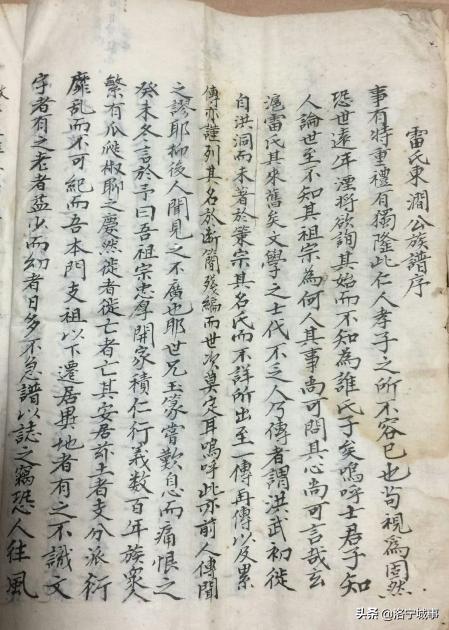 雷氏東澗公族譜序
事有特重禮有獨隆此仁人孝子之所不容已也苟視為固然
恐世遠年湮將欲詢其始而不知為誰氏子矣嗚呼士君子知
人論世至不知其祖宗為何人其事尚可問其心尚可言哉玄
滬雷氏其來舊矣文學之士代不乏人乃傳者謂洪武初徙
自洪洞而未著於業宗其名氏而不詳所出至一傳再傳以及累
傳亦謹列其名於断簡殘編而世次莫定耳嗚呼此亦前人傳聞
之謬耶抑後人聞見之不廣也耶世兄玉篆嘗歎息而痛恨之
癸未冬言於予曰吾祖宗忠厚開家積仁行義数百年族衆人
繁有瓜瓞椒聊之慶然徙者徙亡者亡其安居茲土者支分派衍
靡乱而不可紀而吾本門支祖以下遷居異地者有之不識文
字者有之老者益少而幼者日多不急譜以誌之竊恐人往風
头条 @洛宁城事